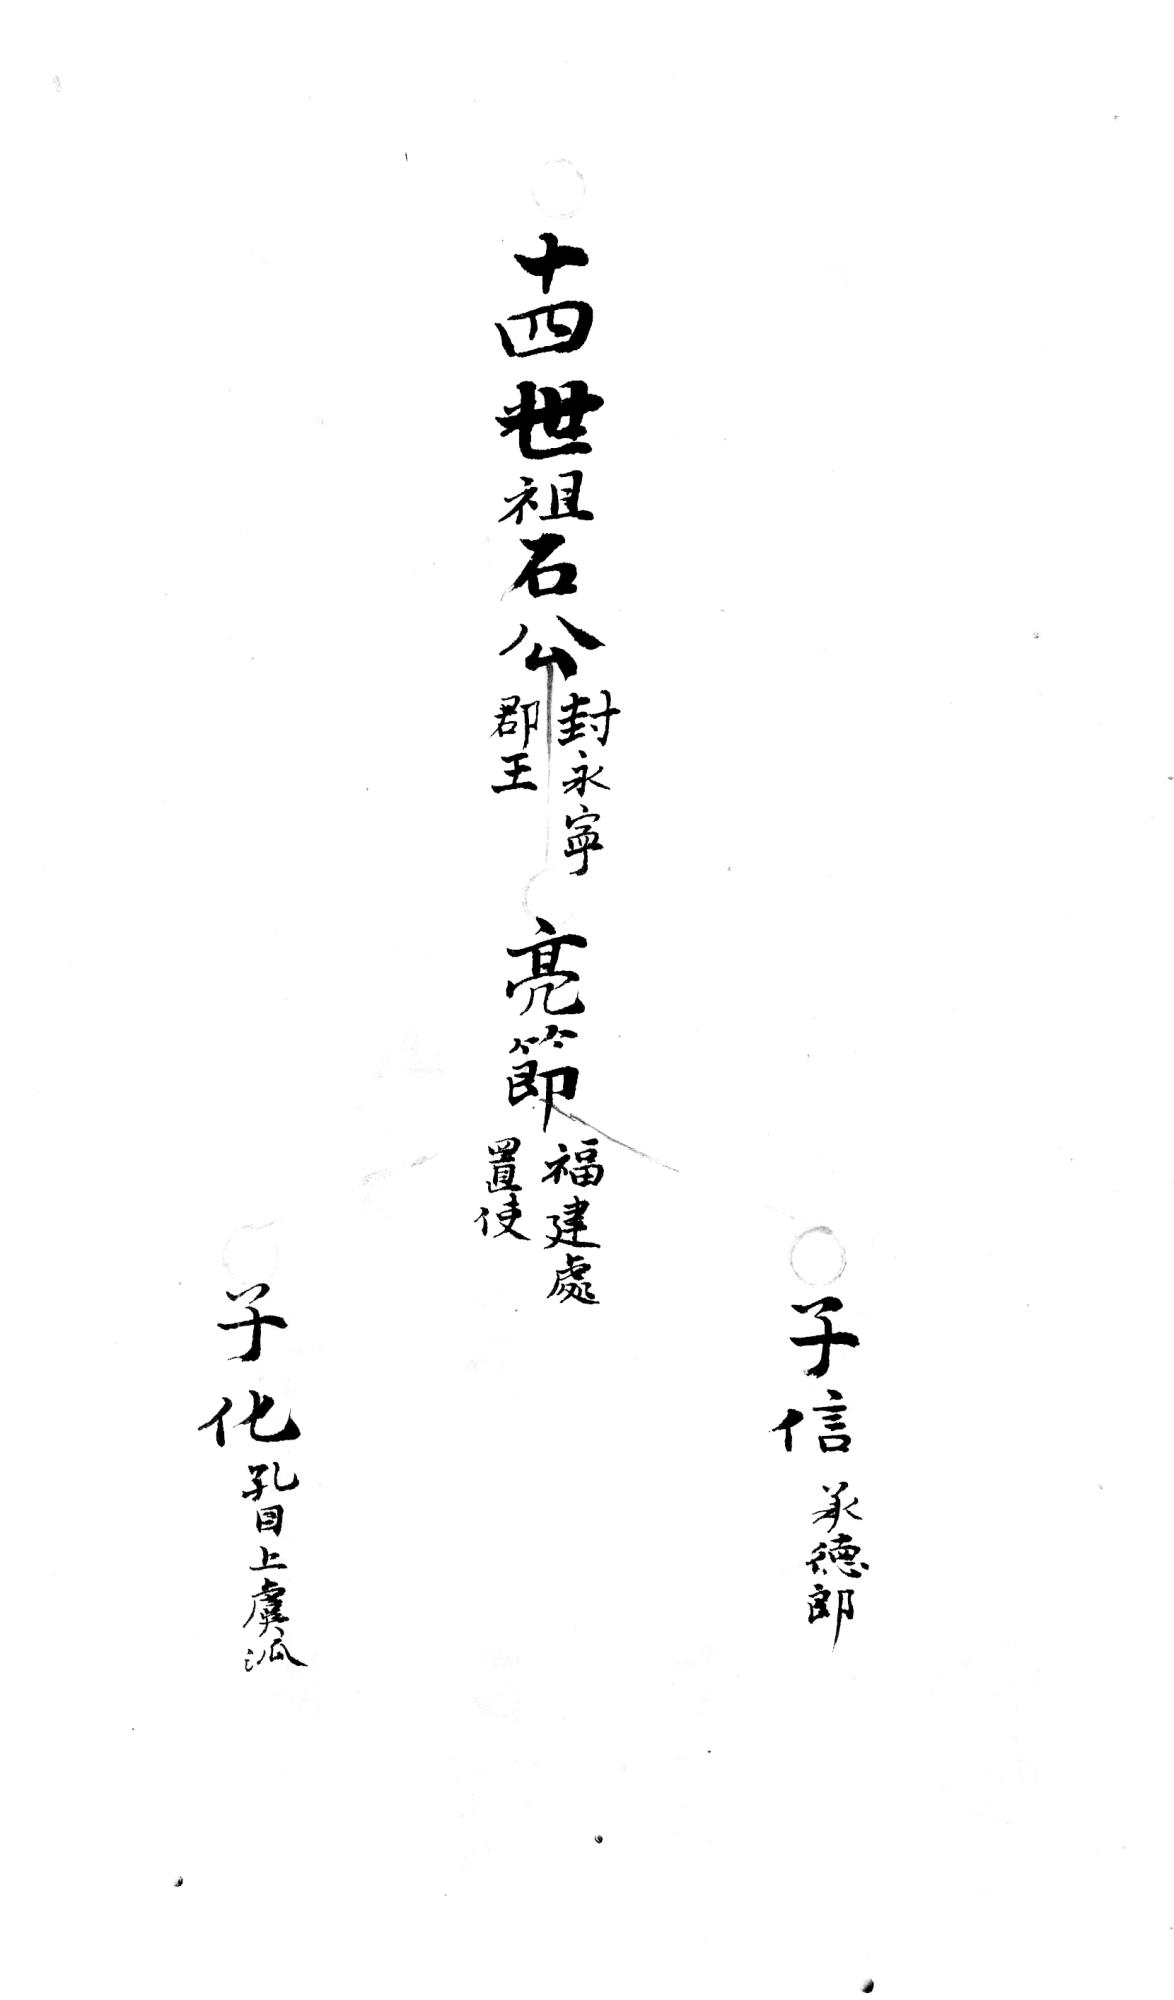 十四世祖石公
封永寧
郡王
亮節
福建處
置使
子信
承德郎
子化
孔目上虞派